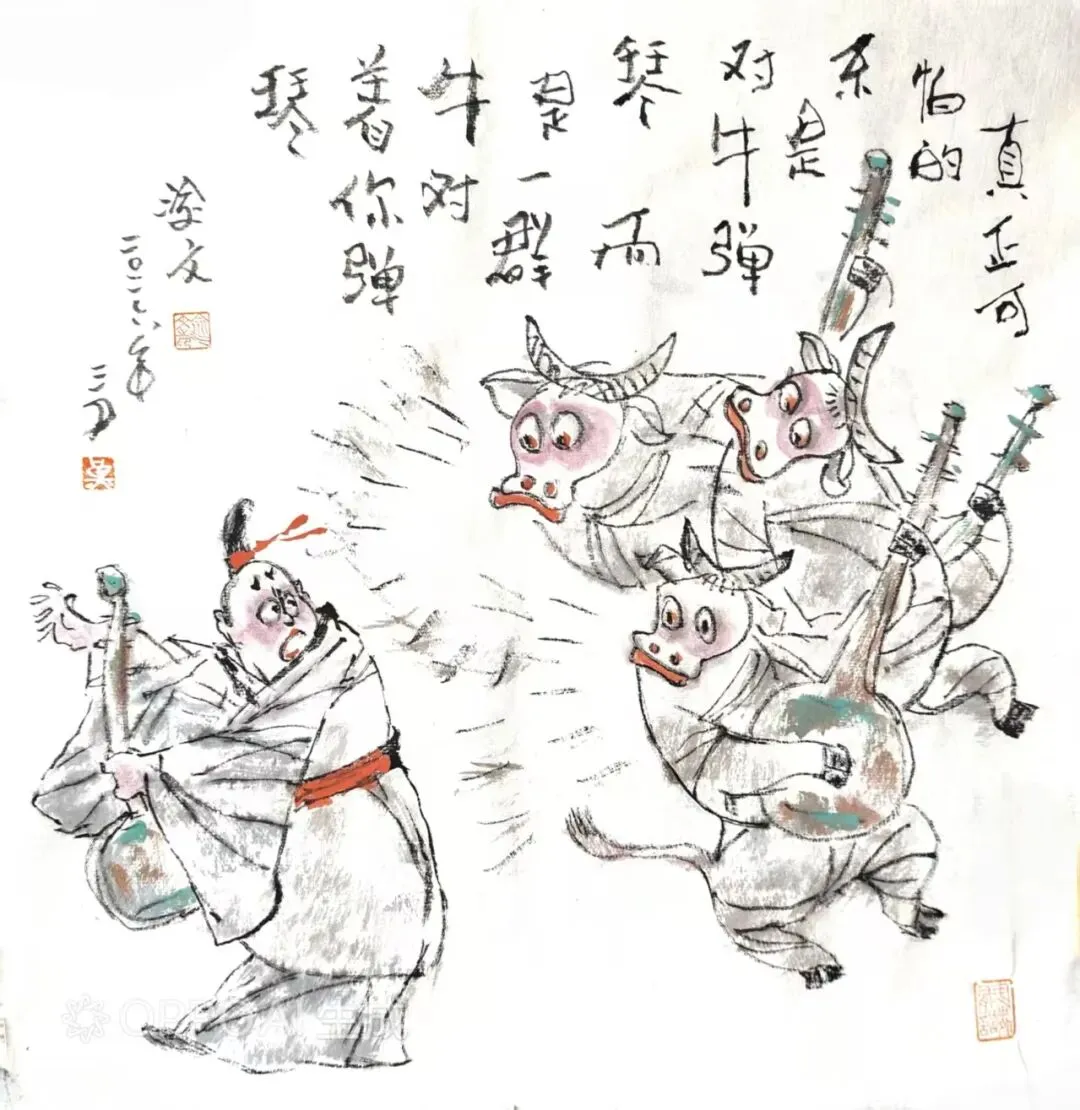 真正可
怕的
不是
对牛弹
琴而
是一群
牛对
着你弹
琴
文
二〇二六年
二月
吴
OPPO AI 生成